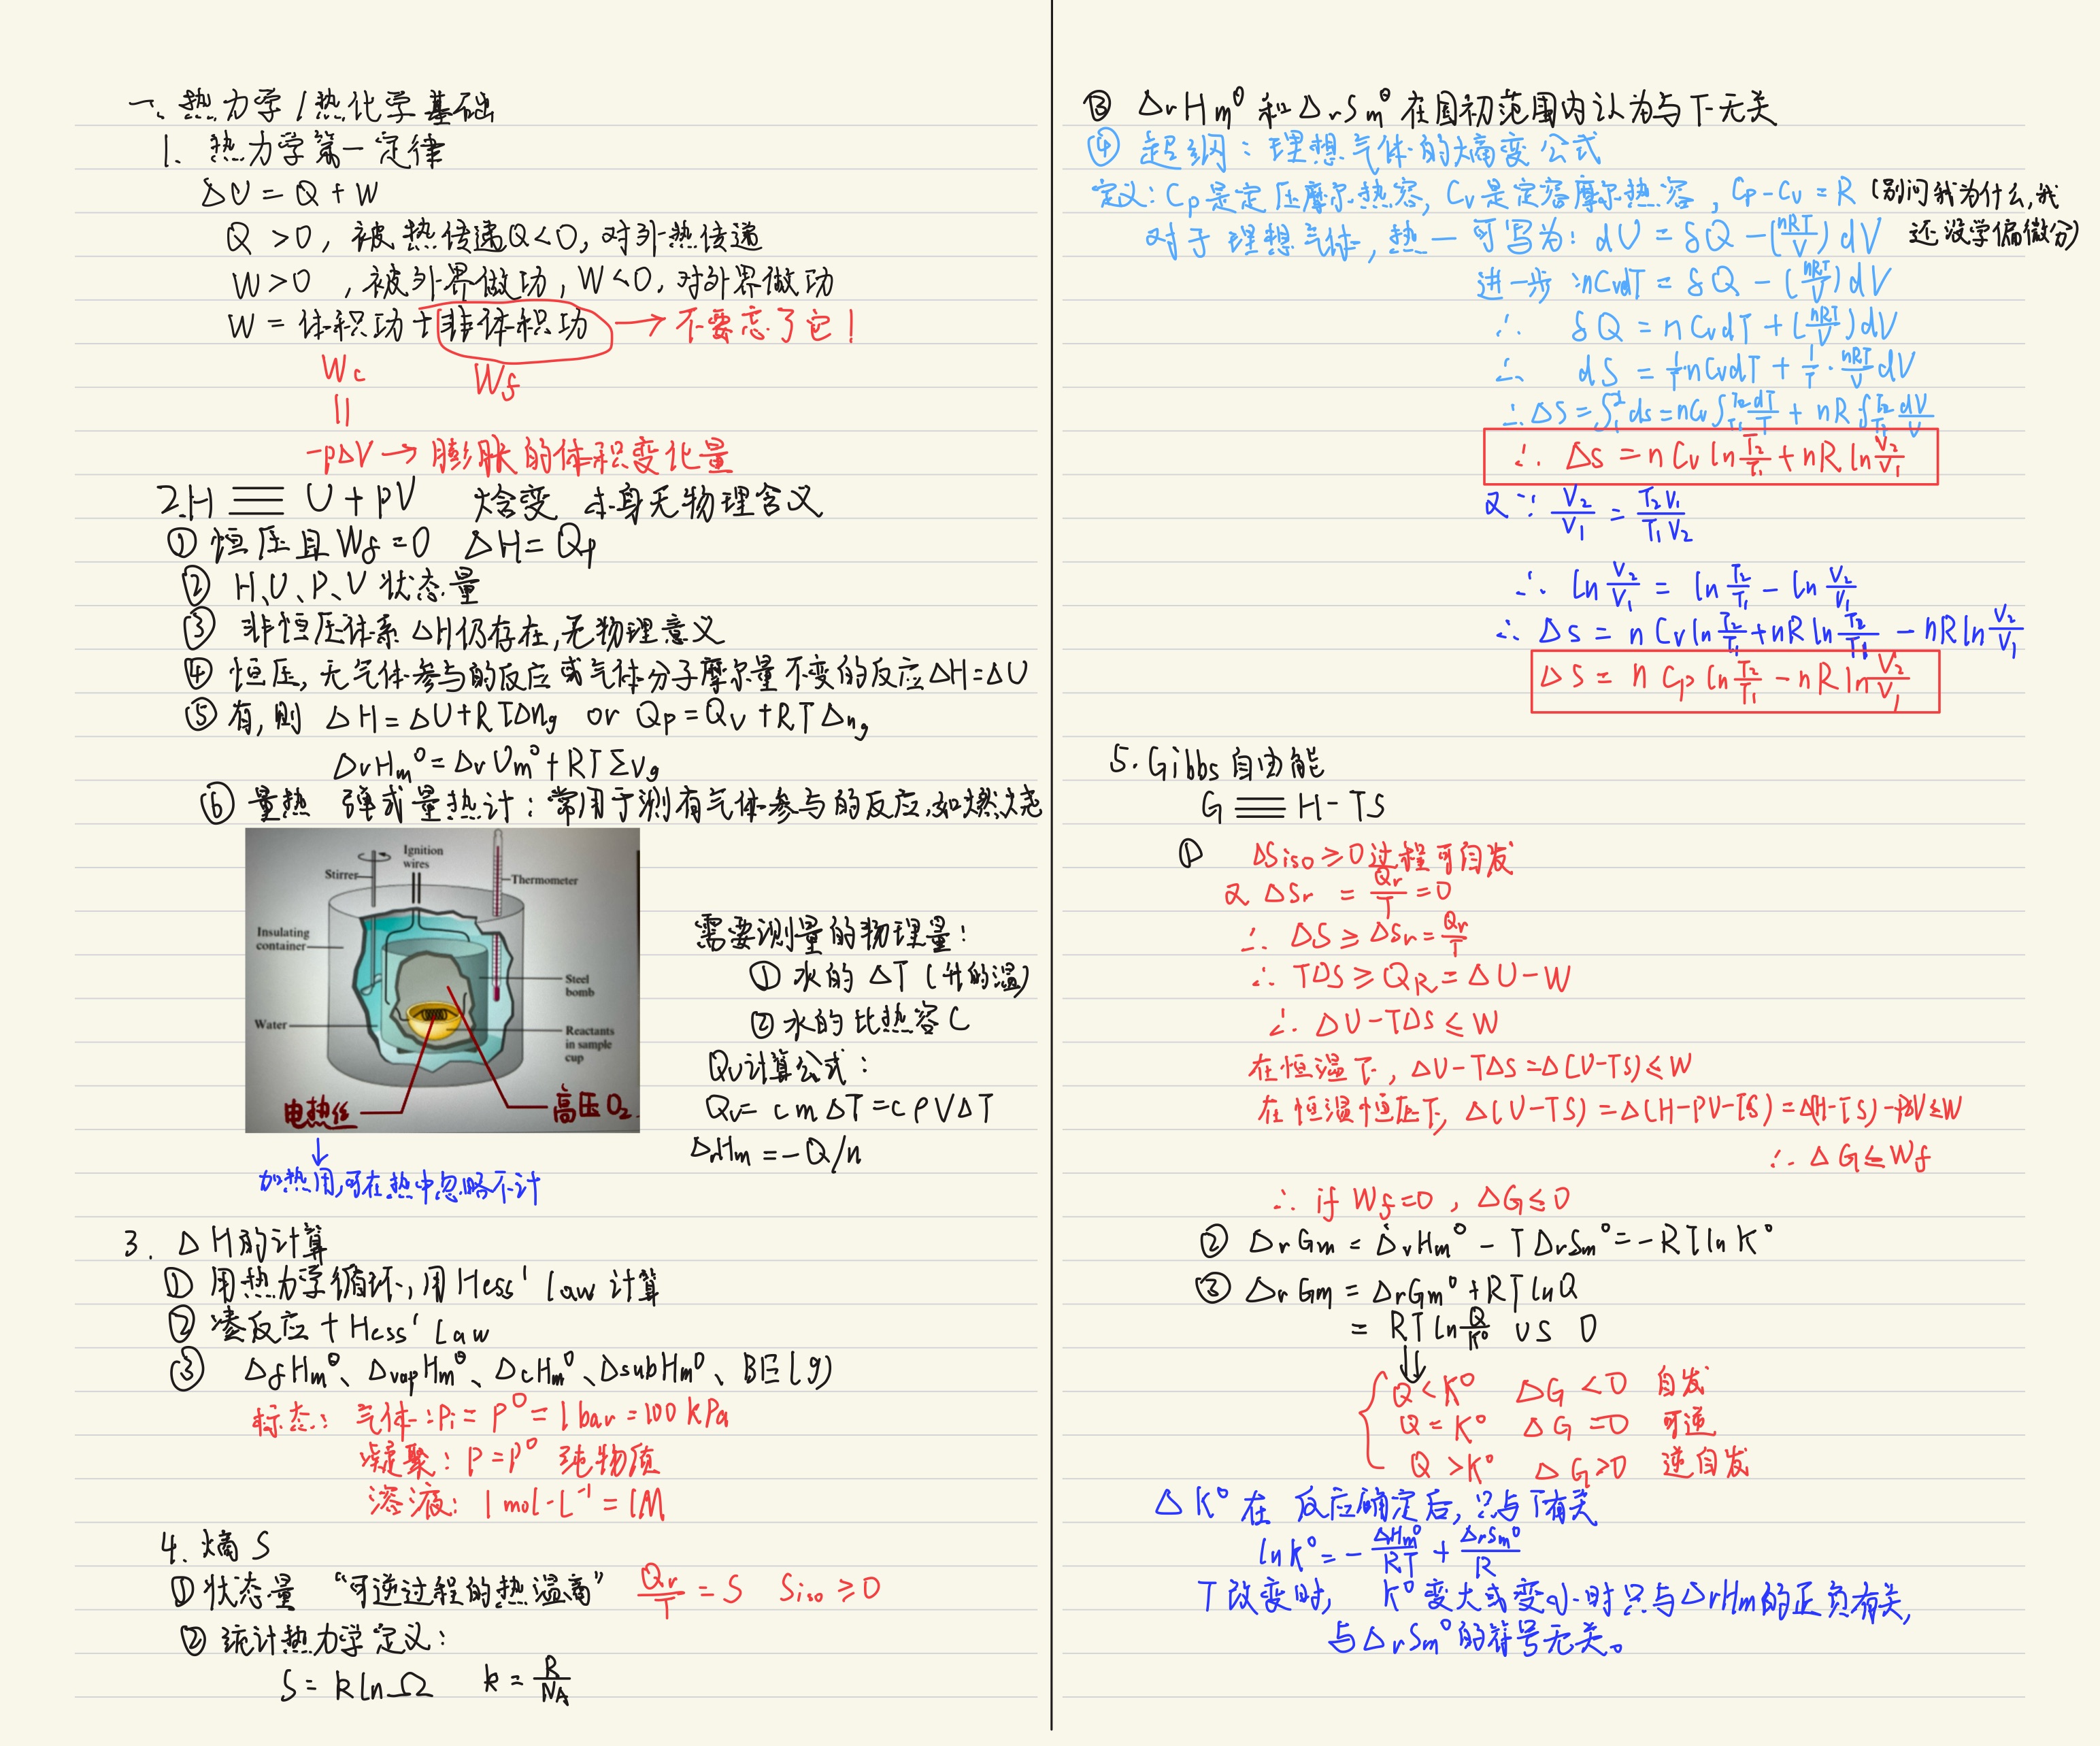 一. 热力学/热化学基础
1. 热力学第一定律
ΔU = Q + W
Q >0, 被热传递Q<0, 对外热传递
W>0 , 被外界做功, W<0, 对外界做功
W = 体积功 + 非体积功 → 不要忘了它!
Wc Wf
||
-pΔV → 膨胀的体积变化量
2.H ≡ U + pV 焓变 本身无物理含义
① 恒压且Wf=0 ΔH = Qp
② H、U、P、V 状态量
③ 非恒压体系 ΔH仍存在,无物理意义
④ 恒压, 无气体参与的反应或气体分子摩尔量不变的反应ΔH=ΔU
⑤ 有, 则 ΔH = ΔU+RTΔng or Qp = Qv +RTΔng
ΔrHm⁰ = ΔrUm⁰ + RTΣνg
⑥ 量热 弹式量热计: 常用于测有气体参与的反应,如燃烧
Ignition wires
Stirrer
Thermometer
Insulating container
Steel bomb
Water
Reactants in sample cup
电热丝
高压O₂
↓
加热用,可在热中忽略不计
需要测量的物理量:
① 水的 ΔT (升的温)
② 水的比热容 C
Qv计算公式:
Qv= cmΔT =cρVΔT
ΔrHm = -Q/n
3. ΔH的计算
① 用热力学循环, 用Hess' law 计算
② 凑反应 + Hess' Law
③ ΔfHm⁰、ΔvapHm⁰、ΔcHm⁰、ΔsubHm⁰、BE(g)
标态: 气体: Pi = P⁰ = 1 bar = 100 kPa
凝聚: P=P⁰ 纯物质
溶液: 1 mol·L⁻¹ = 1M
4. 熵 S
① 状态量 “可逆过程的热温商” Qr/T = S Siso ≥ 0
② 统计热力学定义:
S = k ln Ω k = R/NA
③ ΔrHm⁰ 和 ΔrSm⁰ 在国初范围内认为与T无关
④ 超纲: 理想气体的熵变公式
定义: Cp是定压摩尔热容, Cv是定容摩尔热容, Cp-Cv = R (别问我为什么,我
对于理想气体, 热一可写为: dU = δQ - (nRT/V) dV 还没学偏微分)
进一步: nCvdT = δQ - (nRT/V) dV
∴ δQ = nCvdT + (nRT/V) dV
∴ dS = 1/T nCvdT + 1/T · nRT/V dV
∴ ΔS = ∫₁² ds = nCv ∫T₁T₂ dT/T + nR ∫T₁T₂ dV/V
∴ ΔS = nCv ln T₂/T₁ + nR ln V₂/V₁
又∵ V₂/V₁ = T₂V₁/T₁V₂
∴ ln V₂/V₁ = ln T₂/T₁ - ln V₂/V₁
∴ ΔS = nCv ln T₂/T₁ + nR ln T₂/T₁ - nR ln V₂/V₁
ΔS = nCp ln T₂/T₁ - nR ln V₂/V₁
5. Gibbs 自由能
G ≡ H - TS
① ΔSiso ≥ 0 过程可自发
又 ΔSr = Qr/T = 0
∴ ΔS ≥ ΔSr = Qr/T
∴ TΔS ≥ QR = ΔU - W
∴ ΔU - TΔS ≤ W
在恒温下, ΔU-TΔS = Δ(U-TS) ≤ W
在恒温恒压下, Δ(U-TS) = Δ(H-PV-TS) = Δ(H-TS) - pΔV ≤ W
∴ ΔG ≤ Wf
∴ if Wf=0 , ΔG ≤ 0
② ΔrGm = ΔrHm⁰ - TΔrSm⁰ = -RT ln K⁰
③ ΔrGm = ΔrGm⁰ + RT lnQ
= RT ln Q/K⁰ VS 0
⇓
Q < K⁰ ΔG < 0 自发
Q = K⁰ ΔG = 0 可逆
Q > K⁰ ΔG > 0 逆自发
Δ K⁰在 反应确定后, 只与T有关
lnK⁰ = - ΔHm⁰/RT + ΔrSm⁰/R
T改变时, K⁰变大或变小时只与ΔrHm的正负有关,
与ΔrSm⁰的符号无关。